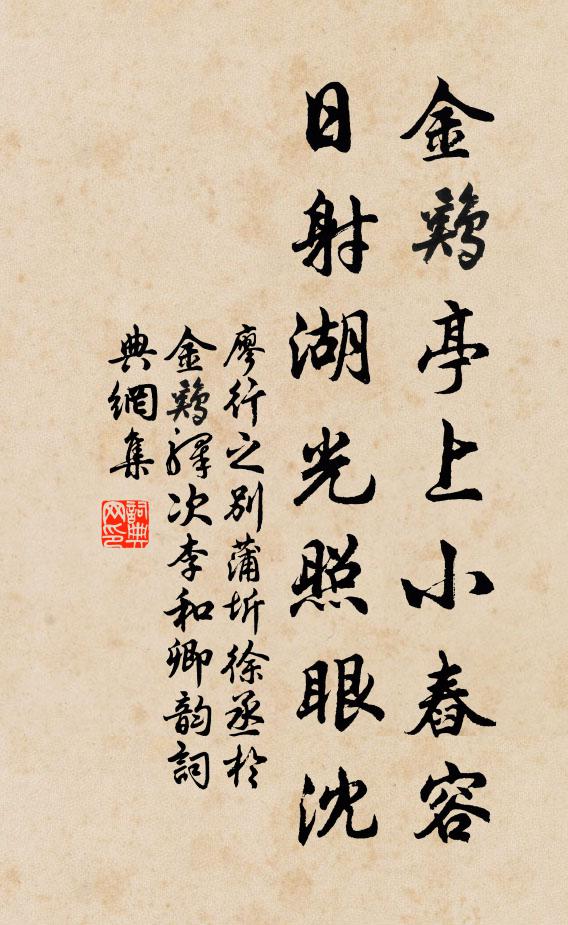 金鷄亭上小舂容
日射湖光照眼沈
廖行之別蒲圻徐丞於
金鷄驛次李和卿韵詞
典網集
詞典网印